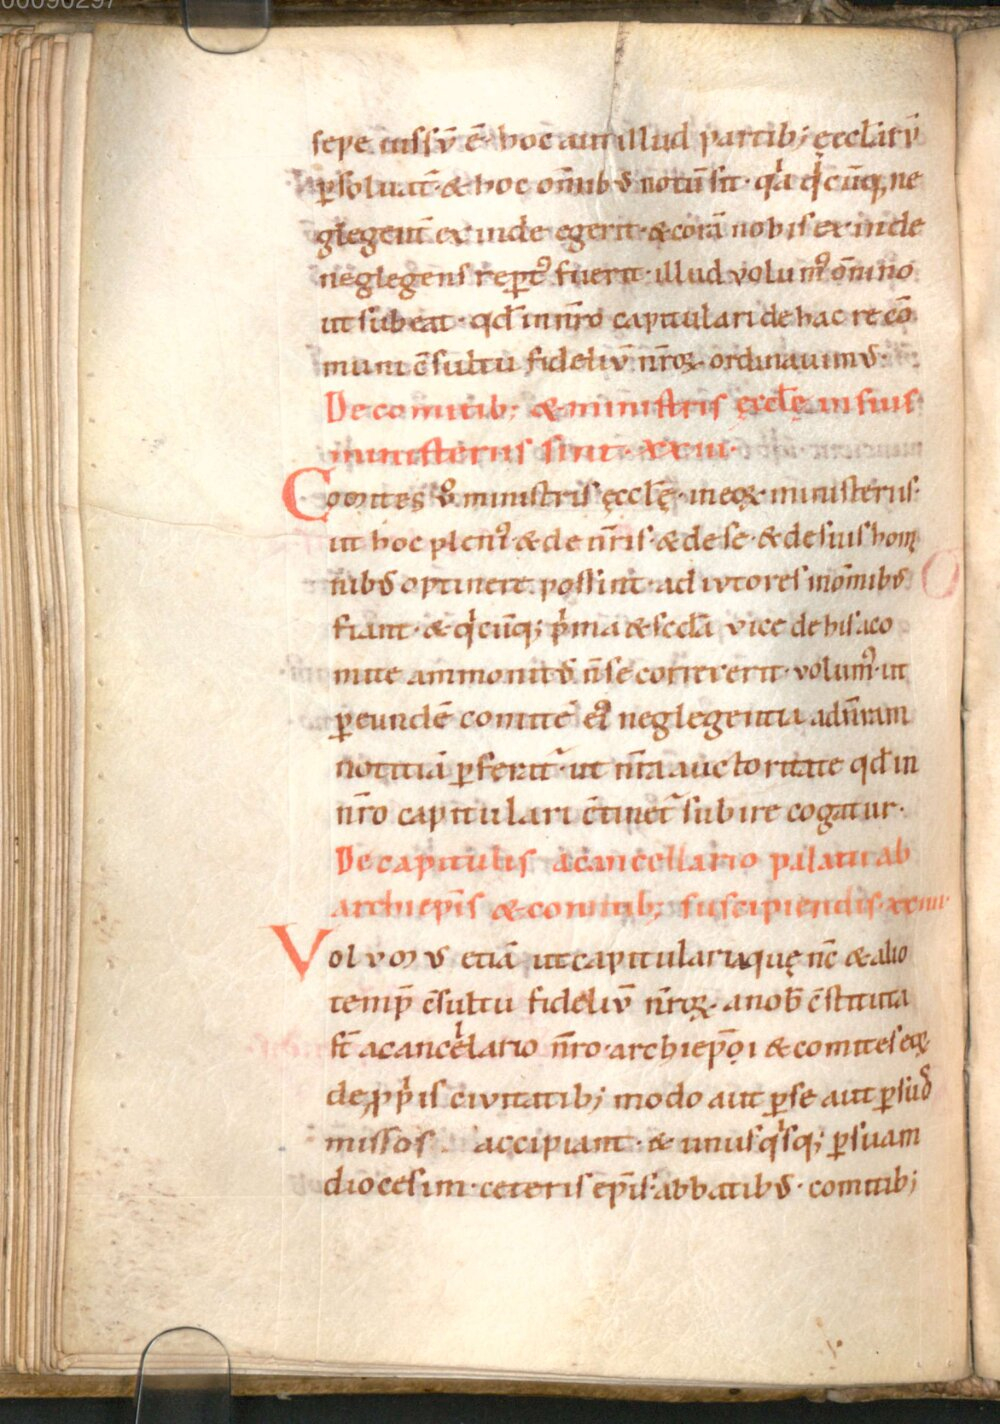 00090297
sepe iussū ē· hoc aut illud partib; ęccl̄arū
ꝑsoluat̄· & hoc om̄ibꝰ notū sit· qͥa qͥcūq; ne
glegent̄ exinde egerit· & corā nobis exinde
neglegens reꝑtꝰ fuerit· illud volumꝰ om̄ino
ut subeat· qd̄ in nr̄o capitulari de hac re cō
muni c̄sultu fideliū nr̄oꝝ ordinauimꝰ·
De comitib; & ministris ęccl̄ę in suis
ministeriis sint· xxiii·
Comites ṽo ministris ęccl̄ę· in eoꝝ ministeriis·
ut hoc pleniꝰ & de nr̄is· & de se· & de suis homi
nibꝰ optinere possint· adiutores in om̄ibꝰ
fiant· & qͥcūq; pͥma & scd̄a vice de his aco
mite ammonitꝰ n̄ se correxerit· volumꝰ· ut
ꝑ eundē comitē eiꝰ neglegentia ad nr̄am
notitiā ꝑferat̄· ut nr̄a auctoritate qd̄ in
nr̄o capitulari c̄tinet̄ subire cogatur·
De capitulis a cancellario palatii ab
archiep̄is & comitib; suscipiendis· xxiiii·
Volvmvs etiā ut capitula quę nc̄ & alio
temp̄ c̄sultu fideliū nr̄oꝝ· a nob̄ c̄stituta
st̄ a cancelͥlario nr̄o· archiep̄oi & comites eoꝝ
de ꝓpͥis civitatib; modo aut ꝑ se aut ꝑ suoꝰ
missos accipiant· & unusqͥsq; ꝑ suam
diocesim· ceteris ep̄is· abbatibꝰ· comitib;